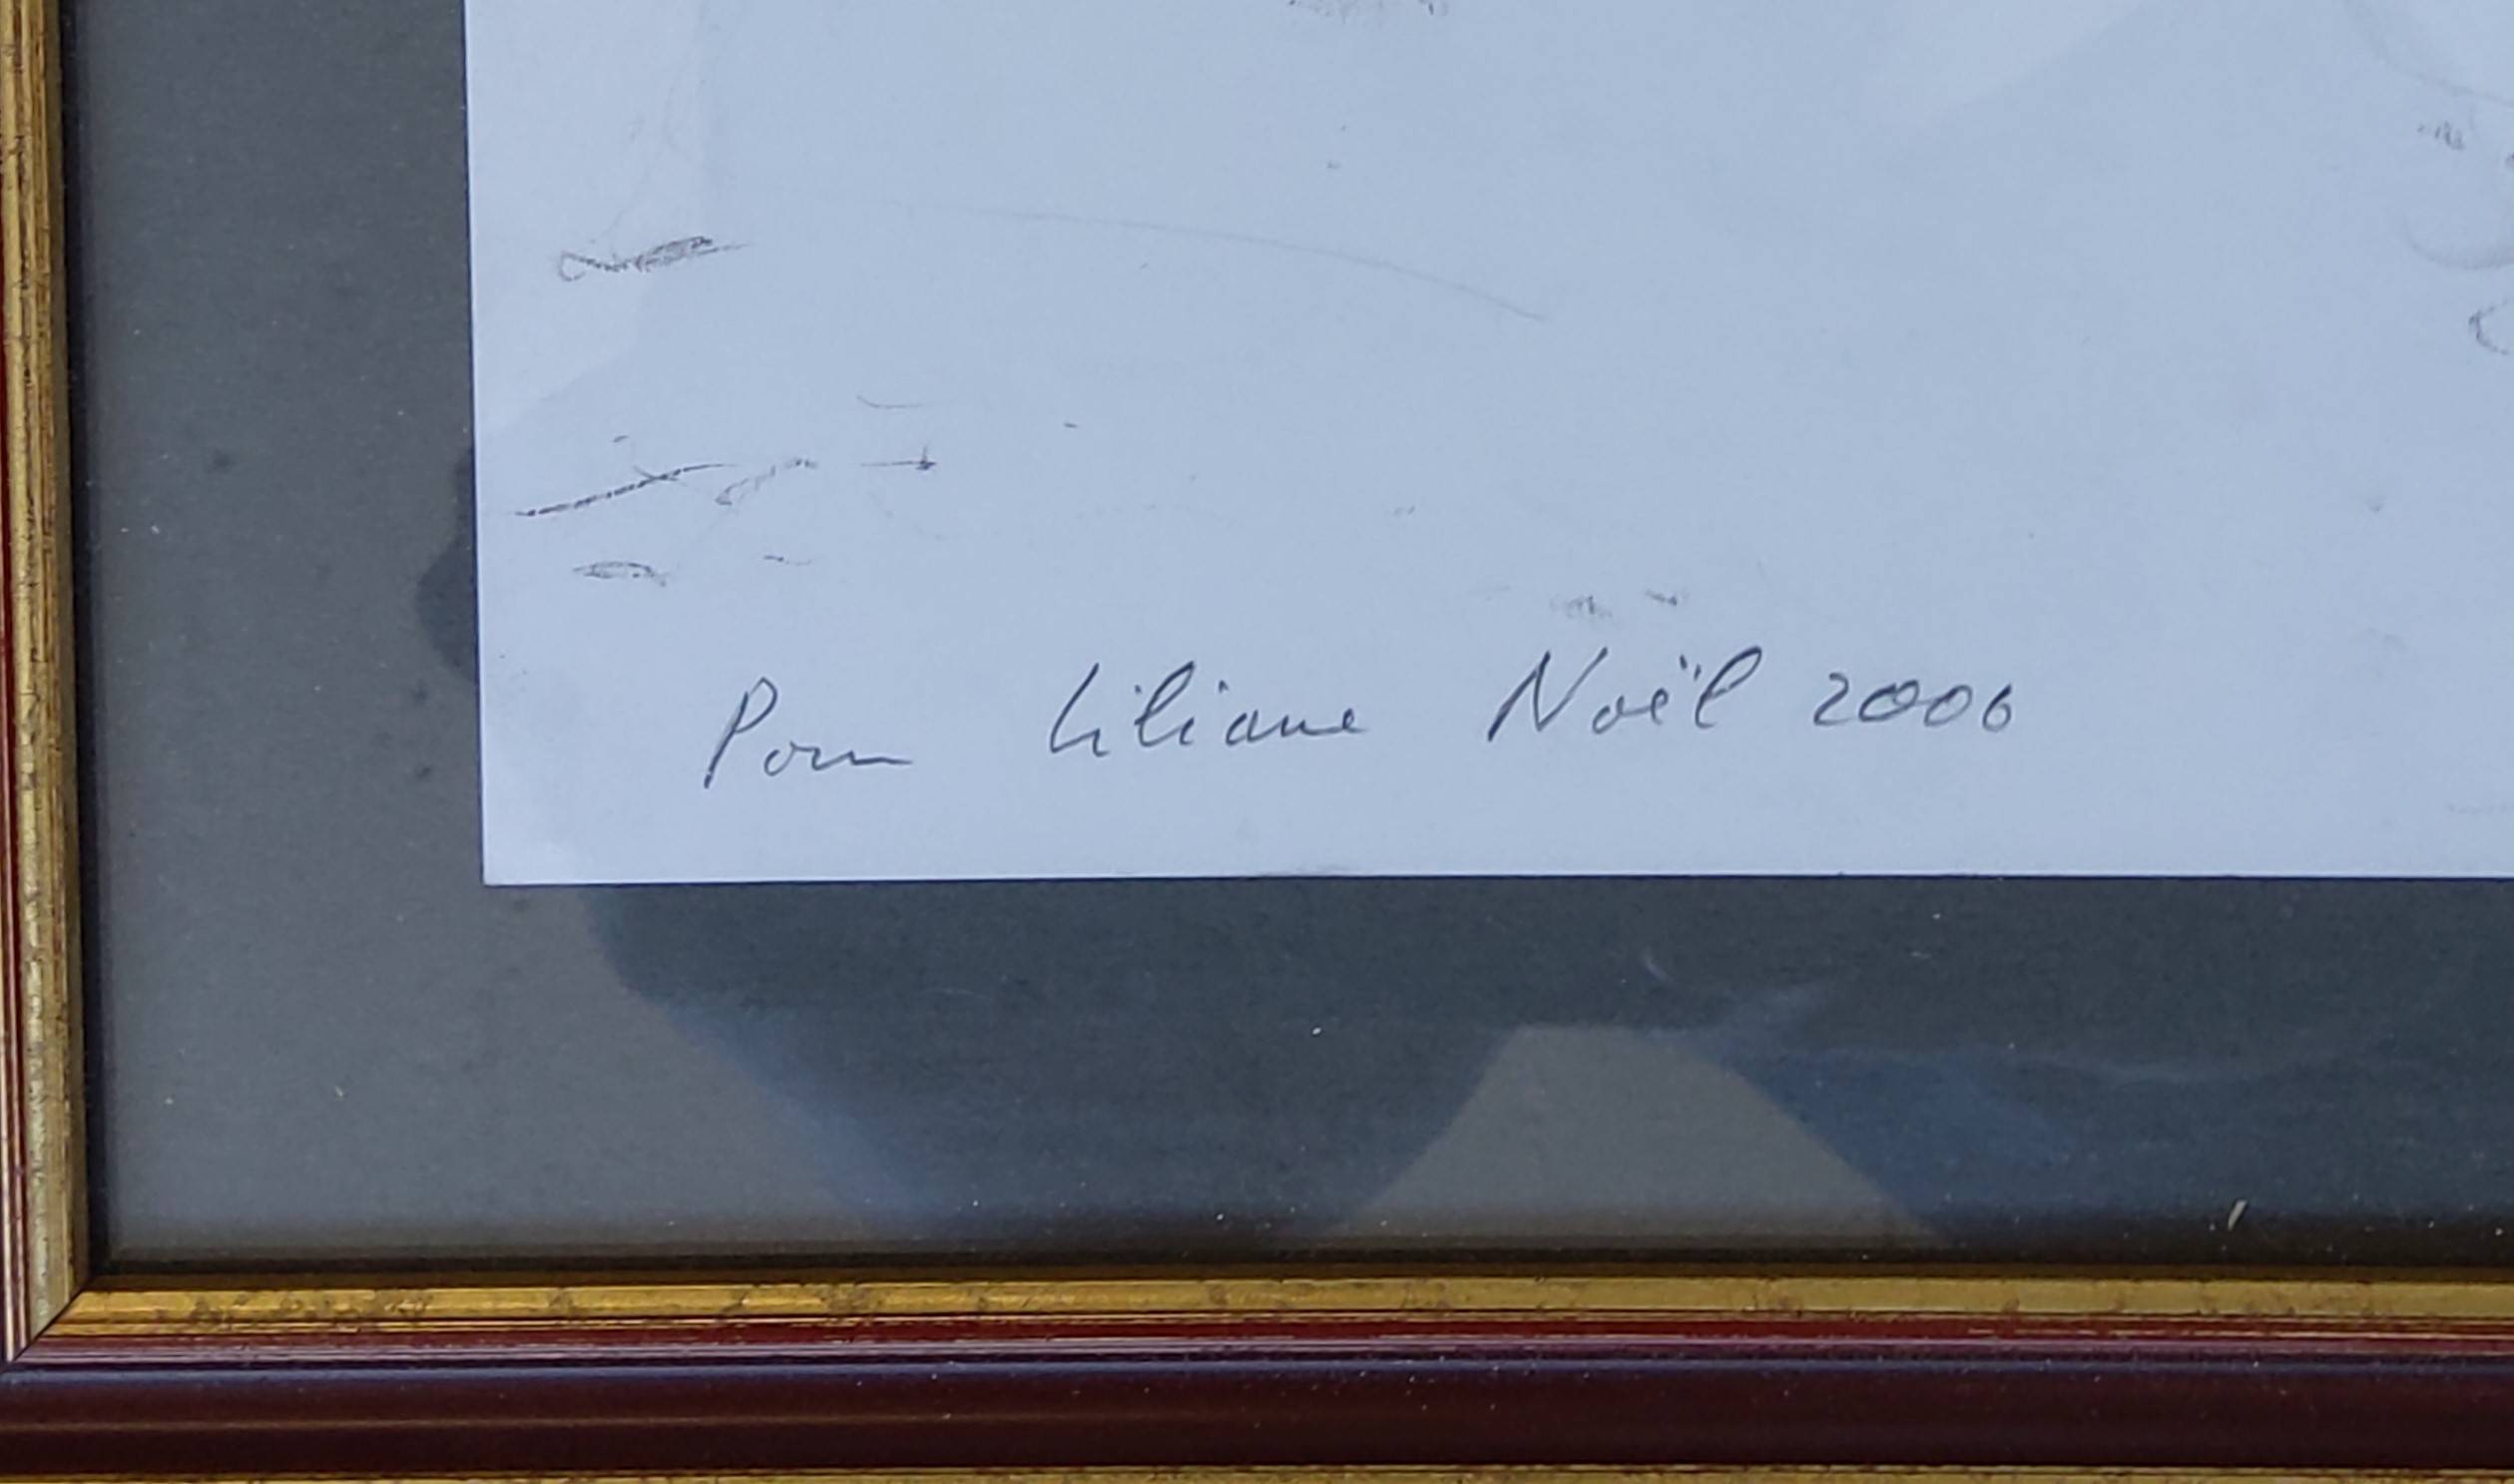 Pour Liliane Noël 2006